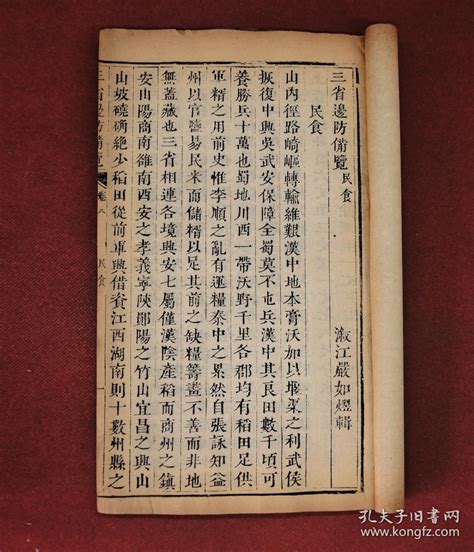 三省邊防備覽民食
溆江嚴如熤輯
民食
山內徑路崎嶇轉輸維艱漢中地本膏沃加以堰渠之利武侯
恢復中興吳武安保障全蜀莫不屯兵漢中其良田數千頃可
養勝兵十萬也蜀地川西一帶沃野千里各郡均有稻田足供
軍糈之用前史惟李順之亂有運糧秦中之累然自張詠知益
州以官鹽易民米而儲糈以足其前之缺糧籌畫不善而非地
無蓋藏也三省相連各境興安七屬僅漢陰產稻而商州之鎮
安山陽商南雒南西安之孝義寧陝鄖陽之竹山宜昌之興山
山坡磽确絶少稻田從前軍興借資江西湖南則十數州縣之
三省邊防備覽
卷八
民食
孔夫子旧书网
www.kongfz.com